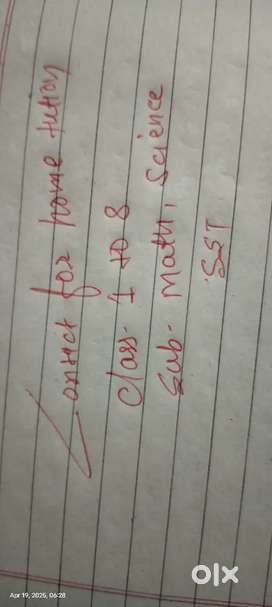 Contact for home tution
Class- 1 to 8
Sub- Math, Science
SST
Apr 19, 2025, 06:28
olx